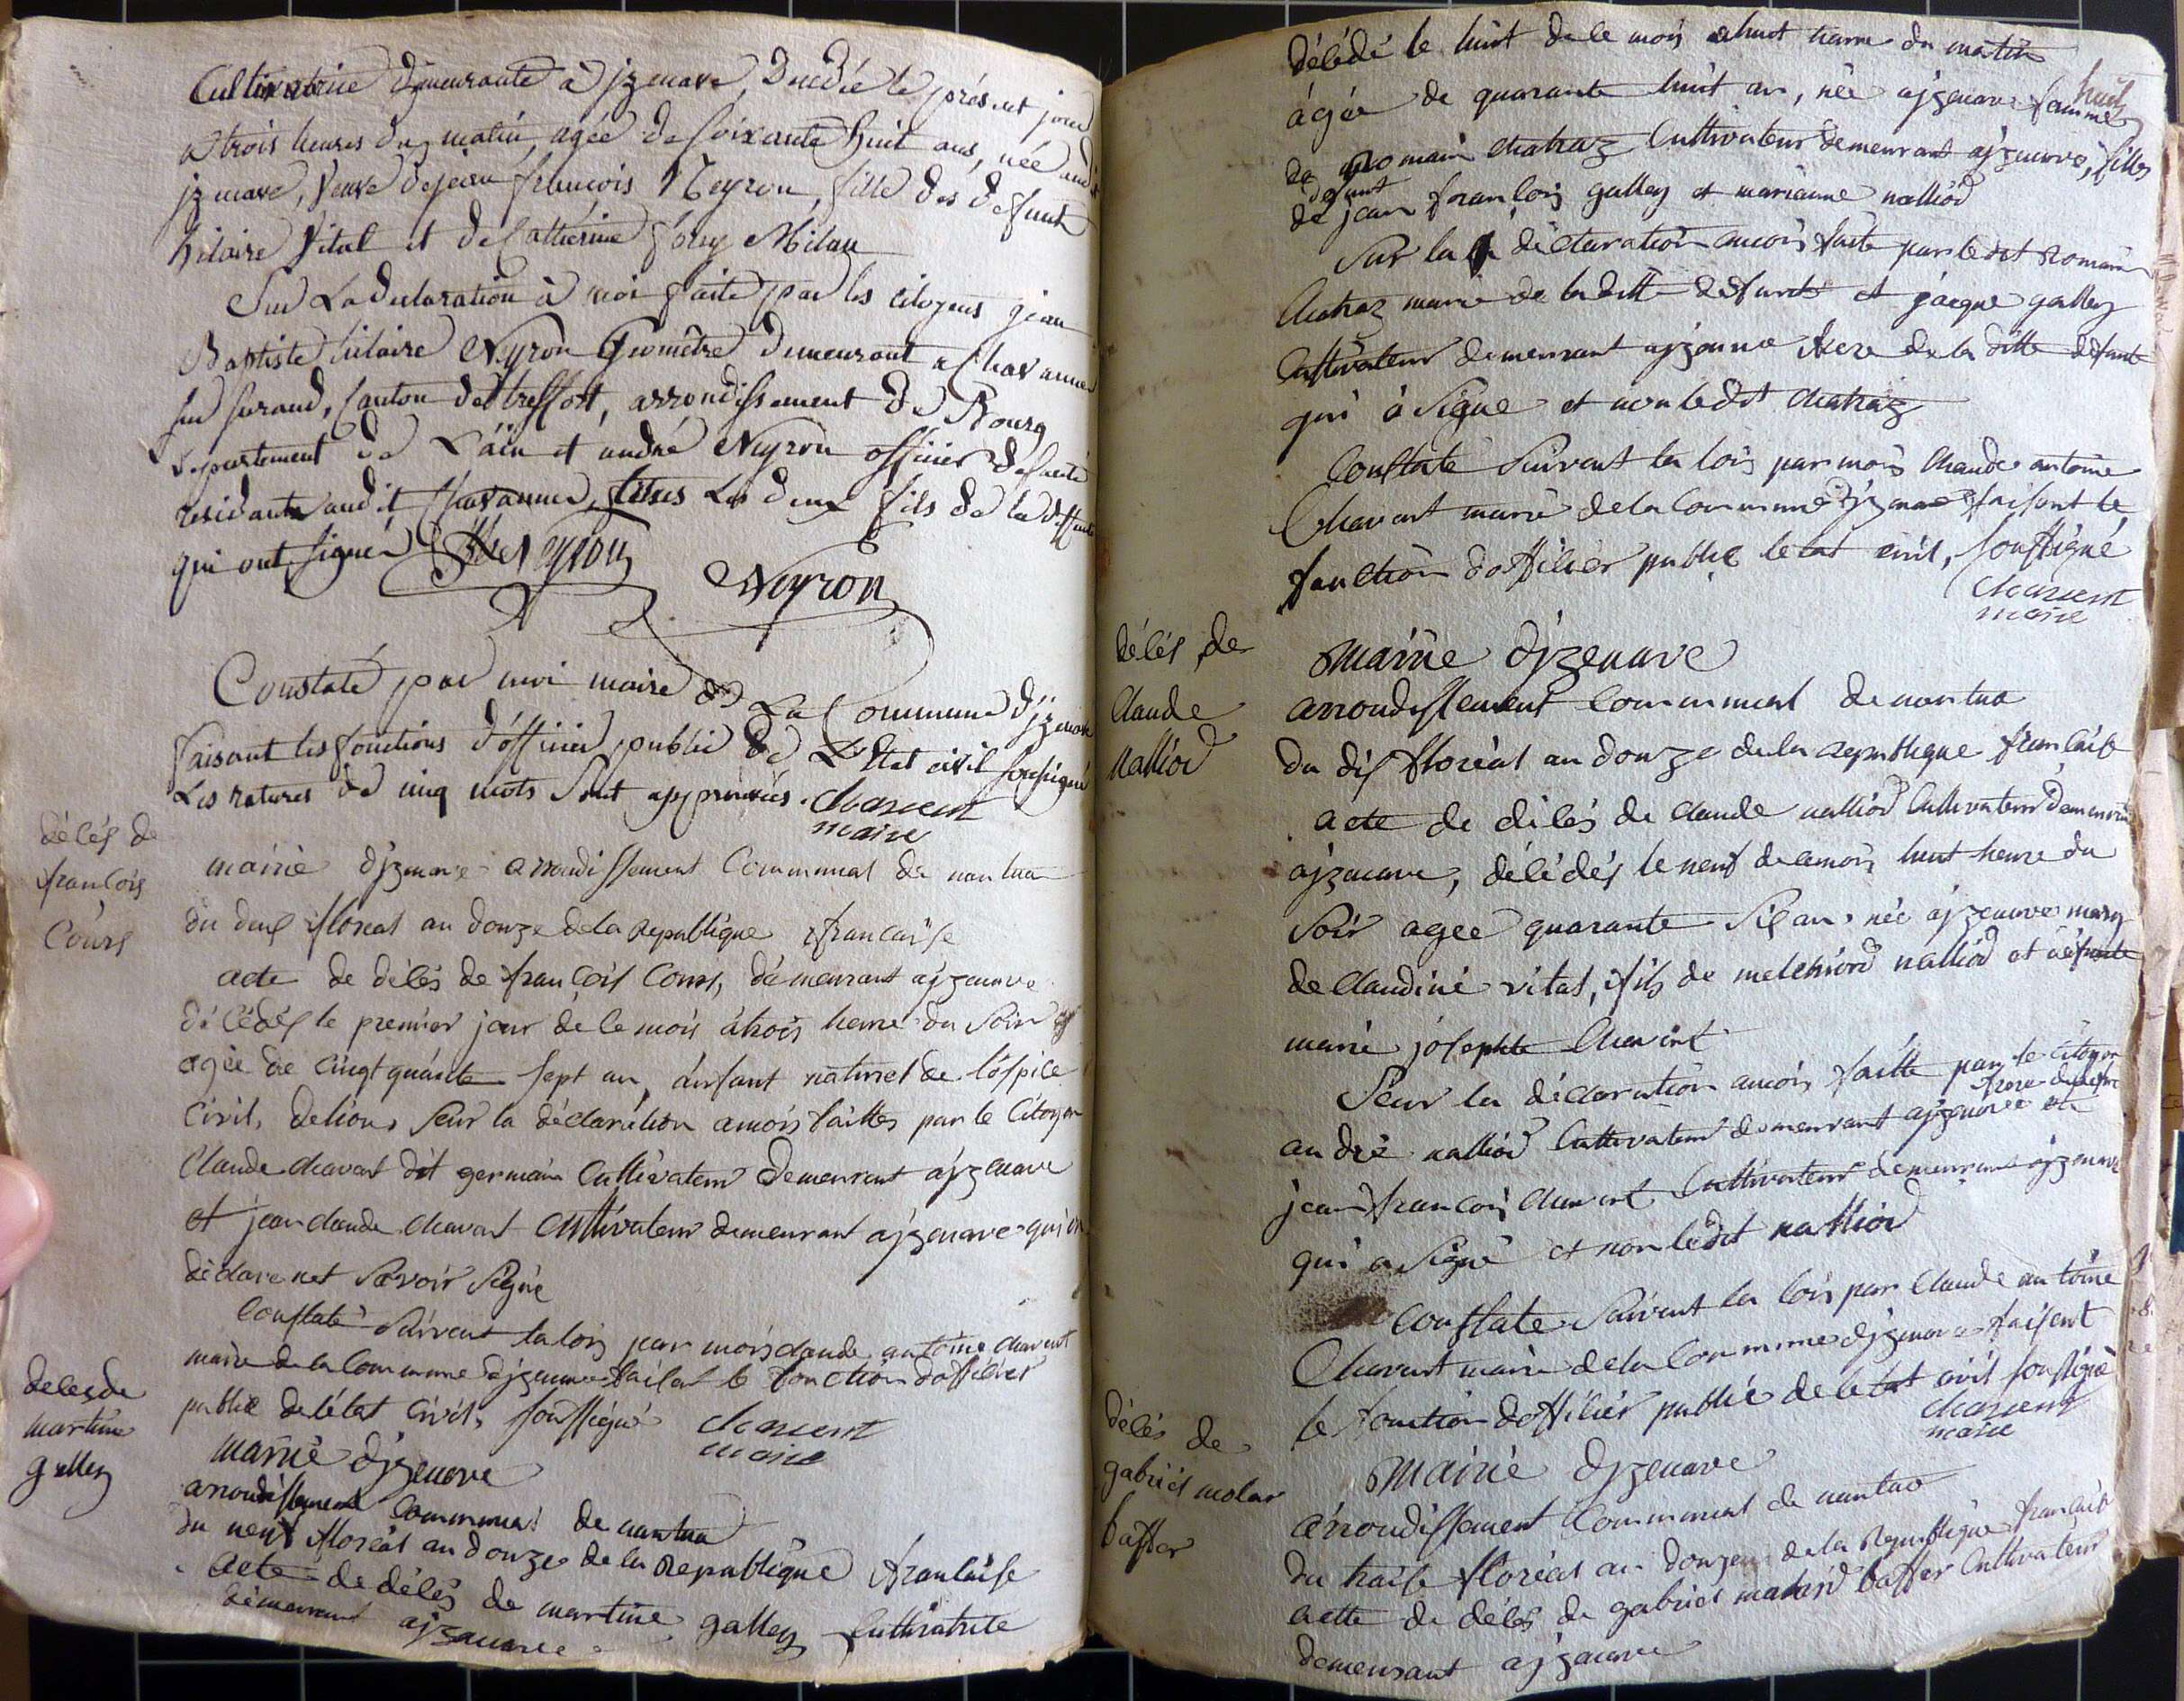 Cultivatrice demeurante à jzenave, Décédée le présent jour
a trois heures du matin, agée de soixante huit ans, née audit
jzenave, veuve de jean françois Neyron, fille des defunt
hilaire Vital et de Catherine
Sur La declaration à moi faite par les citoyens jean
Baptiste hilaire Neyron Geomètre demeurant a Chavannes
sur surand, Canton de treffort, arrondissement de Bourg
departement de L'ain et andré Neyron officier de santé
residant audit Chavannes, les deux fils de la deffunte
qui ont signé Neyron
Neyron
Constaté par moi maire de La Commune d'jzenave
faisant les fonctions d'officier public de L'Etat civil soussigné
Les ratures de cinq mots sont approuvées. Chavent
maire
délés de
françois
Cours
mairie djzenave arrondissement Communal de nantua
du deux floréal an douze de la republique françaisse
acte de délés de françois Cours, démeurant ajzenave
décédés le premier jour de ce mois à trois heure du soir
agée de cingtquante sept an, anfant naturel de l'ospice
Civil de lion, seur la déclaration a mois faittes par le Citoyen
Claude chavant dit germain Cultivateur demeurant ajzenave
et jean claude chavant Cultivateur demeurant ajzenave qui on
déclare net savoir signé
Constaté suivent la lois par mois claude antoine chavent
maire de la Commune djzenave faisant le fonction doffilier
public de létat civil, soussigné chavent
maire
deles de
martine
galley
mairie djzenave
arrondissement Communal de nantua
du neuf floréal an douze de la Republique françaisse
acte de délés de martine galley Cultivatrice
démeurant ajzenave
délédé le huit de ce mois a huit heure du matin
huit
âgée de quarante huit an, née ajzenave famme
de Romain chatraz Cultivateur demeurant ajzenave, filles
defunt
de jean françois galley et marianne nalliod
Sur la déclaration amois faite par le dit Romain
Chatraz marie de la ditte defunte et jacque galley
Cultivateur demeurant ajzenave frere de la ditte defunte
qui à signe et non ledit chatraz
Constate suivent la lois par mois claude antoine
Chavent marie de la Commune djzenave faisant le
fonction dofficier public letat civil, soussigné
chavent
maire
délés de
Claude
Nalliod
mairie djzenave
arrondissement Communal de nantua
du dix floréal an douze de la republique française
acte de délés de claude nalliod Cultivateur demeurant
ajzenave, délédés le neuf de ce mois huit heure du
soir agee quarante six an née ajzenave mary
de claudine vital, fils de melchiord nalliod et defunte
marie josephte Chavent
Seur la déclaration amois faitte par le citoyen
frere
andré nalliod Cultivateur demeurant ajzenave et
jean françois chavent Cultivateur demeurant ajzenave
qui a signé et non ledit nalliod
Constate suivent la lois par Claude antoine
Chavent maire de la Commune djzenave faisent
le fonction dofficier public de letat civil soussigné
chavent
maire
délés de
gabriel molar
baffer
mairie djzenave
arrondissement Communal de nantua
du traise floréal an douze de la Republique française
actte de délés de gabriel baffer Cultivateur
demeurant ajzenave